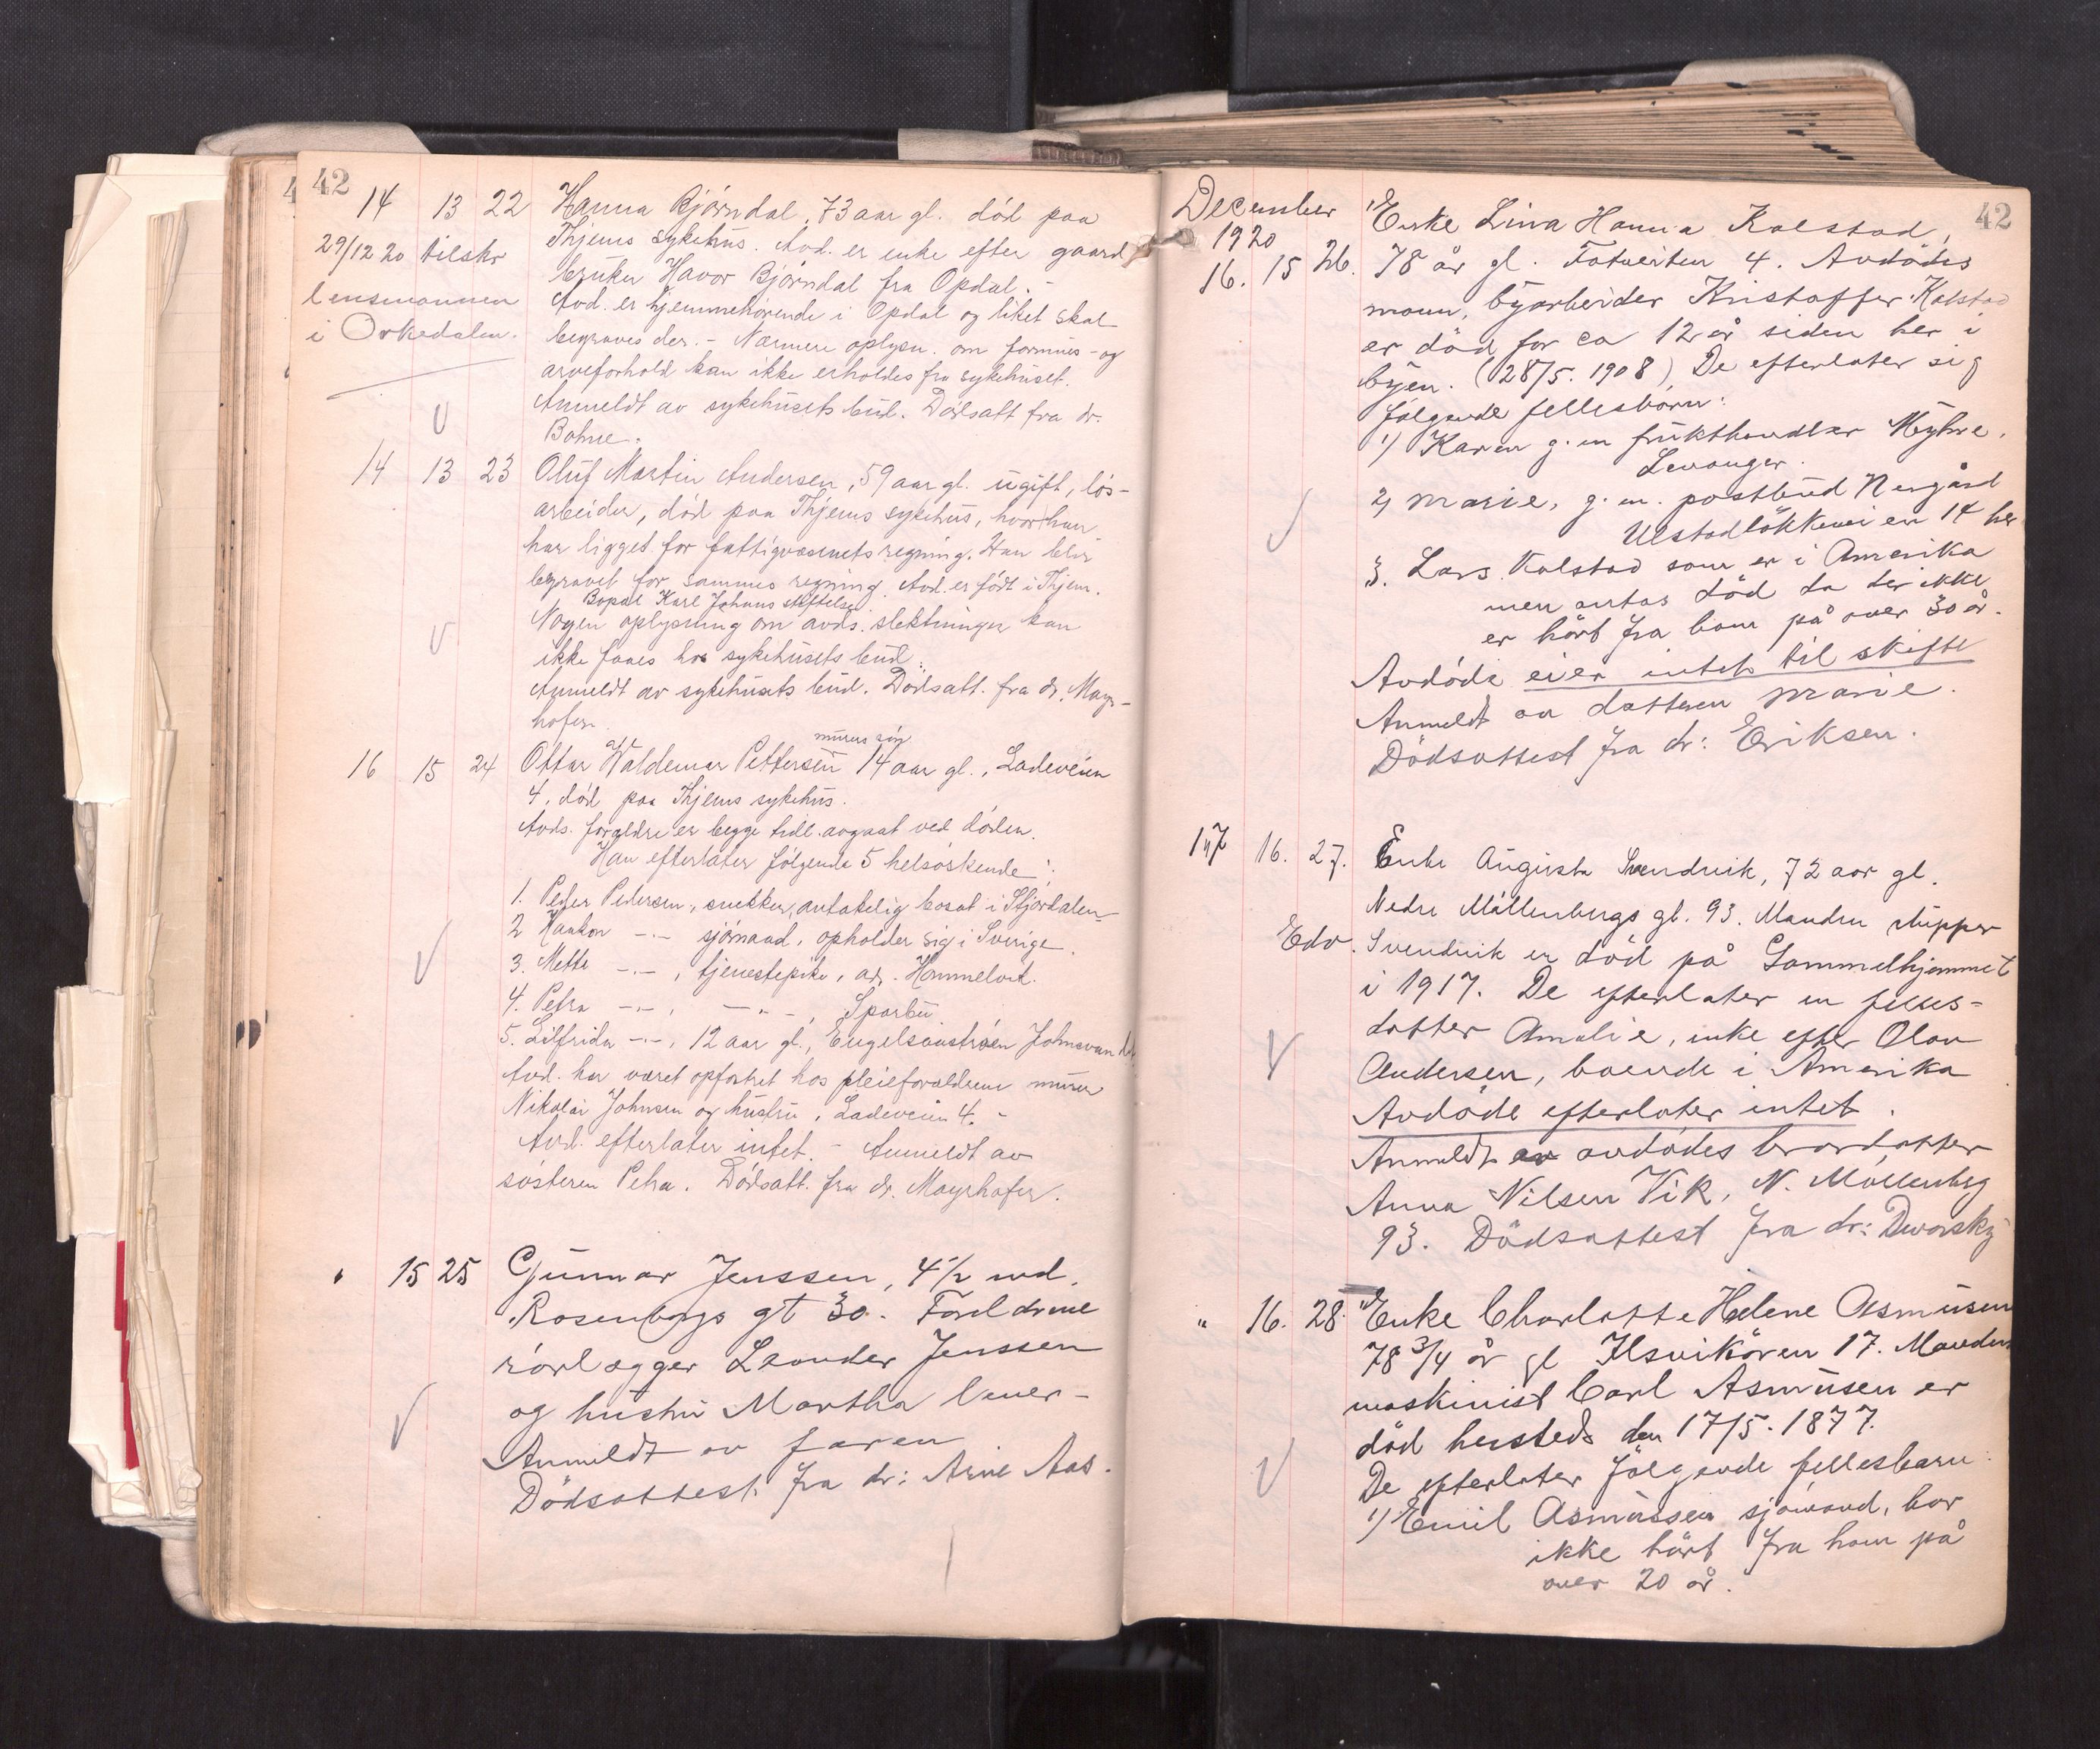 42
14 13 22 Hanna Bjørndal, 73 aar gl. død paa
29/12 20 tilskr Thjems sykehus. Avd. er enke efter gaard
bruker Havor Bjørndal fra Opdal. -
lensmannen Avd. er hjemmehørende i Opdal og liket skal
i Orkedalen. begraves der. - Nærmere oplysn. om formues- og
arveforhold kan ikke erholdes fra sykehuset.
Anmeldt av sykehusets bud. Dødsatt fra dr.
Bohne.
14 13 23 Oluf Martin Andersen, 59 aar gl. ugift, løs-
arbeider, død paa Thjems sykehus, hvor han
har ligget for fattigvæsenets regning. Han blir
begravet for sammes regning. Avd. er født i Thjem.
Bopæl Karl Johans stiftelse.
Nogen oplysning om avds. slektninger kan
ikke faaes hos sykehusets bud.
Anmeldt av sykehusets bud. Dødsatt. fra dr. Mayr-
hofer.
murersøn
16 15 24 Ottar Waldemar Pettersen 14 aar gl., Ladeveien
4, død paa Thjems sykehus.
Avds. forældre er begge tidl. avgaat ved døden.
Han efterlater følgende 5 helsøskende:
1. Peder Pedersen, snekker, antakelig bosat i Stjørdalen
2 Haakon -"- sjømand, opholder sig i Sverige.
3. Mette -"-, tjenestepike, adr. Hommelvik.
4. Petra -"-, -"-, Sparbu
5. Lilfrida -"-, 12 aar gl., Engelsaastrøen Johnsvandet
Avd. har været opfostret hos pleieforældrene murer
Nikolai Johnsen og hustru, Ladeveien 4. -
Avd. efterlater intet. - Anmeldt av
søsteren Petra. Dødsatt. fra dr. Mayrhofer.
" 15 25 Gunnar Jenssen, 4 1/2 md.
Rosenborgs gt 30. Foreldrene
rørlægger Leander Jenssen
og hustru Martha lever -
Anmeldt av faren
Dödsattest fra dr: Arne Aas.
42
December
1920
16. 15 26. Enke Lina Hanna Kolstad,
78 år gl. Totveiten 4. Avdödes
mann, byarbeider Kristoffer Kolstad
er död for ca 12 år siden her i
byen. (28/5. 1908) De efterlater sig
følgende fellesbarn:
1) Karen g. m frukthandler Myhre.
Levanger.
2) Marie, g. m. postbud Nergård
Ulstadlökkeveien 14 her
3. Lars Kolstad som er i Amerika
men antas död da der ikke
er hört fra ham på over 30 år.
Avdöde eier intet til skifte
Anmeldt av datteren Marie.
Dödsattest fra dr: Eriksen.
17 16. 27. Enke Augusta Svendvik, 72 aar gl.
Nedre Möllenbergs gt. 93. Manden skipper
Edv. Svendvik er död på Gammelhjemmet
i 1917. De efterlater en felles-
datter Amalie, enke efter Olav
Andersen, boende i Amerika
Avdöde efterlater intet.
Anmeldt av avdödes brordatter
Anna Nilsen Vik, N. Möllenberg
93. Dödsattest fra dr: Dworsky
" 16. 28. Enke Charlotte Helene Asmusen
78 3/4 år gl Ilsvikören 17. Manden
maskinist Carl Asmusen er
död hersteds den 17/5. 1877.
De efterlater følgende fellesbarn:
1) Emil Asmussen sjömand, har
ikke hört fra ham på
over 20 år.